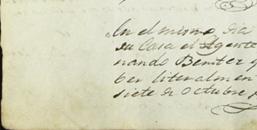 En el mismo dia
su Casa el Agente
nando Benitez y
ber literalmen
siete de Octubre